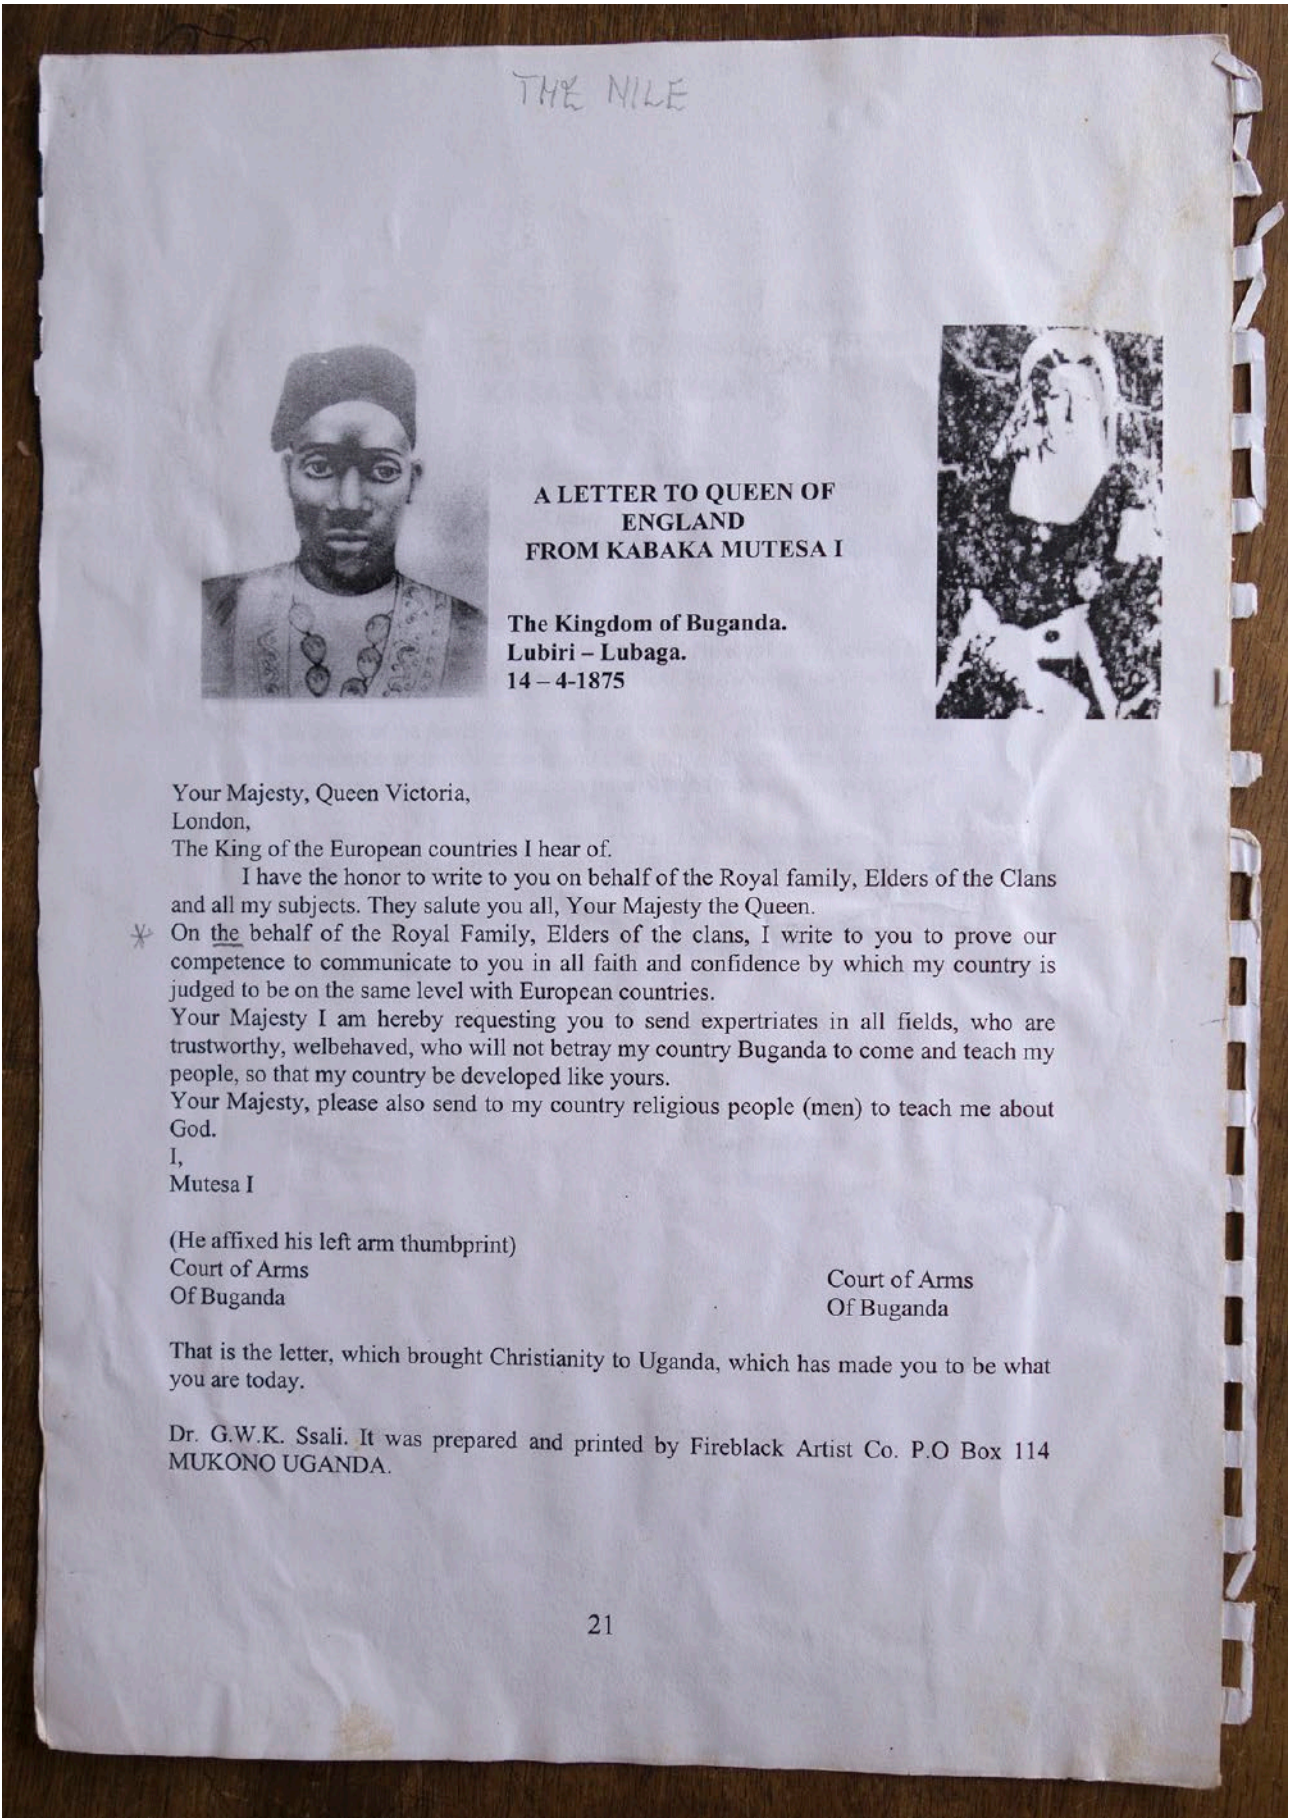 THE NILE
A LETTER TO QUEEN OF
ENGLAND
FROM KABAKA MUTESA I
The Kingdom of Buganda.
Lubiri – Lubaga.
14 – 4-1875
Your Majesty, Queen Victoria,
London,
The King of the European countries I hear of.
I have the honor to write to you on behalf of the Royal family, Elders of the Clans
and all my subjects. They salute you all, Your Majesty the Queen.
On the behalf of the Royal Family, Elders of the clans, I write to you to prove our
competence to communicate to you in all faith and confidence by which my country is
judged to be on the same level with European countries.
Your Majesty I am hereby requesting you to send expertriates in all fields, who are
trustworthy, welbehaved, who will not betray my country Buganda to come and teach my
people, so that my country be developed like yours.
Your Majesty, please also send to my country religious people (men) to teach me about
God.
I,
Mutesa I
(He affixed his left arm thumbprint)
Court of Arms
Of Buganda
Court of Arms
Of Buganda
That is the letter, which brought Christianity to Uganda, which has made you to be what
you are today.
Dr. G.W.K. Ssali. It was prepared and printed by Fireblack Artist Co. P.O Box 114
MUKONO UGANDA.
21